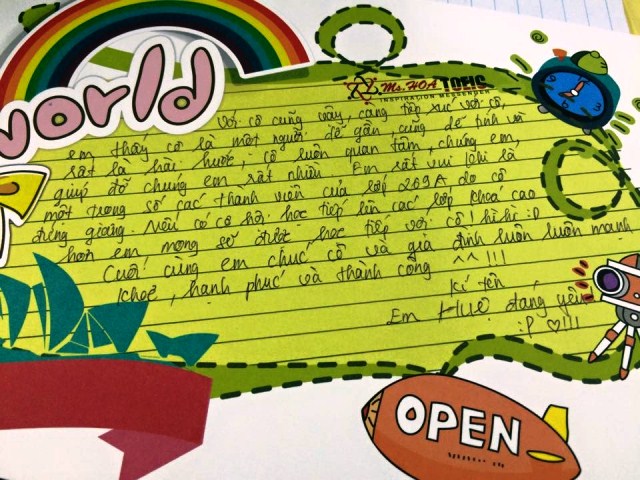 World
Ms. HOA TOEIC
INSPIRATION MESSENGER
Với cô cũng vậy, càng tiếp xúc với cô,
em thấy cô là một người dễ gần, cũng dễ tính và
rất là hài hước. Cô luôn quan tâm, chúng em,
giúp đỡ chúng em rất nhiều. Em rất vui khi là
một trong số các thành viên của lớp 269A do cô
đứng giảng. Nếu có cơ hội học tiếp lên các lớp khoá cao
hơn em mong sẽ được học tiếp với cô! hihi :P
Cuối cùng em chúc cô và gia đình luôn luôn mạnh
khoẻ, hạnh phúc và thành công ^^ !!!
Kí tên
Em Huệ đáng yêu!
:P ♡!!!
OPEN